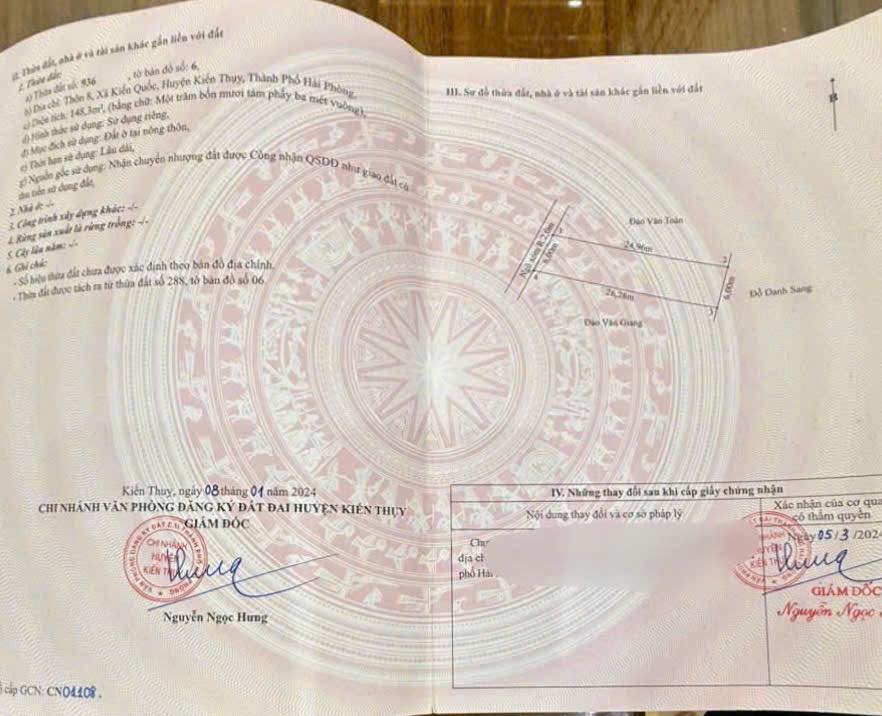 II. Thửa đất, nhà ở và tài sản khác gắn liền với đất
1. Thửa đất:
a) Thửa đất số: 936 , tờ bản đồ số: 6,
b) Địa chỉ: Thôn 8, Xã Kiến Quốc, Huyện Kiến Thụy, Thành Phố Hải Phòng,
c) Diện tích: 148,3m², (bằng chữ: Một trăm bốn mươi tám phẩy ba mét vuông),
d) Hình thức sử dụng: Sử dụng riêng,
đ) Mục đích sử dụng: Đất ở tại nông thôn,
e) Thời hạn sử dụng: Lâu dài,
g) Nguồn gốc sử dụng: Nhận chuyển nhượng đất được Công nhận QSDĐ như giao đất có
thu tiền sử dụng đất,
2. Nhà ở: -/-
3. Công trình xây dựng khác: -/-
4. Rừng sản xuất là rừng trồng: -/-
5. Cây lâu năm: -/-
6. Ghi chú:
- Số hiệu thửa đất chưa được xác định theo bản đồ địa chính.
- Thửa đất được tách ra từ thửa đất số 288, tờ bản đồ số 06.
Kiến Thụy, ngày 08 tháng 01 năm 2024
CHI NHÁNH VĂN PHÒNG ĐĂNG KÝ ĐẤT ĐAI HUYỆN KIẾN THỤY
GIÁM ĐỐC
CHI NHÁNH
HUYỆN
KIẾN THỤY
Nguyễn Ngọc Hưng
cấp GCN: CN01108.
III. Sơ đồ thửa đất, nhà ở và tài sản khác gắn liền với đất
B
Đào Văn Toàn
Ngõ xóm R.2.0m
1
24,96m
2
6,00m
6,00m
Đỗ Danh Sang
4
26,28m
3
Đào Văn Giang
IV. Những thay đổi sau khi cấp giấy chứng nhận
Nội dung thay đổi và cơ sở pháp lý
Xác nhận của cơ qua
có thẩm quyền
Ngày 05/3/202
địa ch
phố Hải
GIÁM ĐỐC
Nguyễn Ngọc